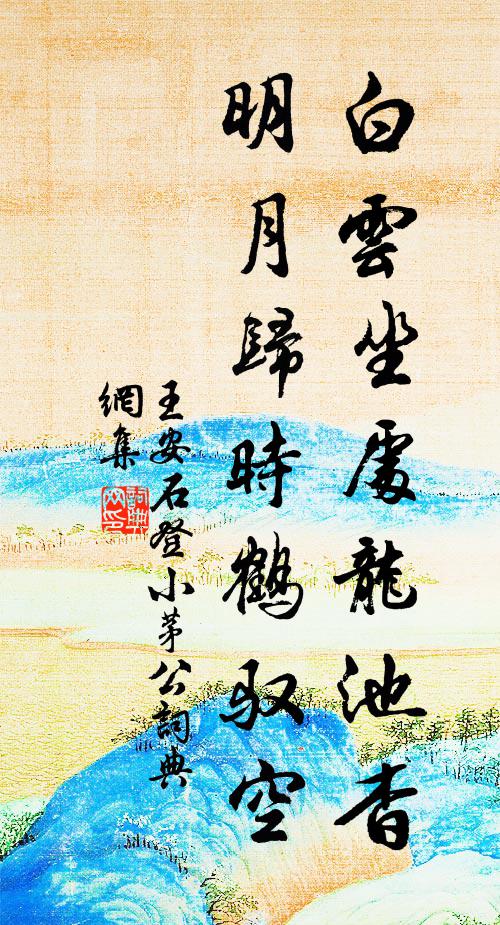 白雲坐處龍池杳
明月歸時鶴馭空
王安石登小茅公詞典
網集
詞典
网印